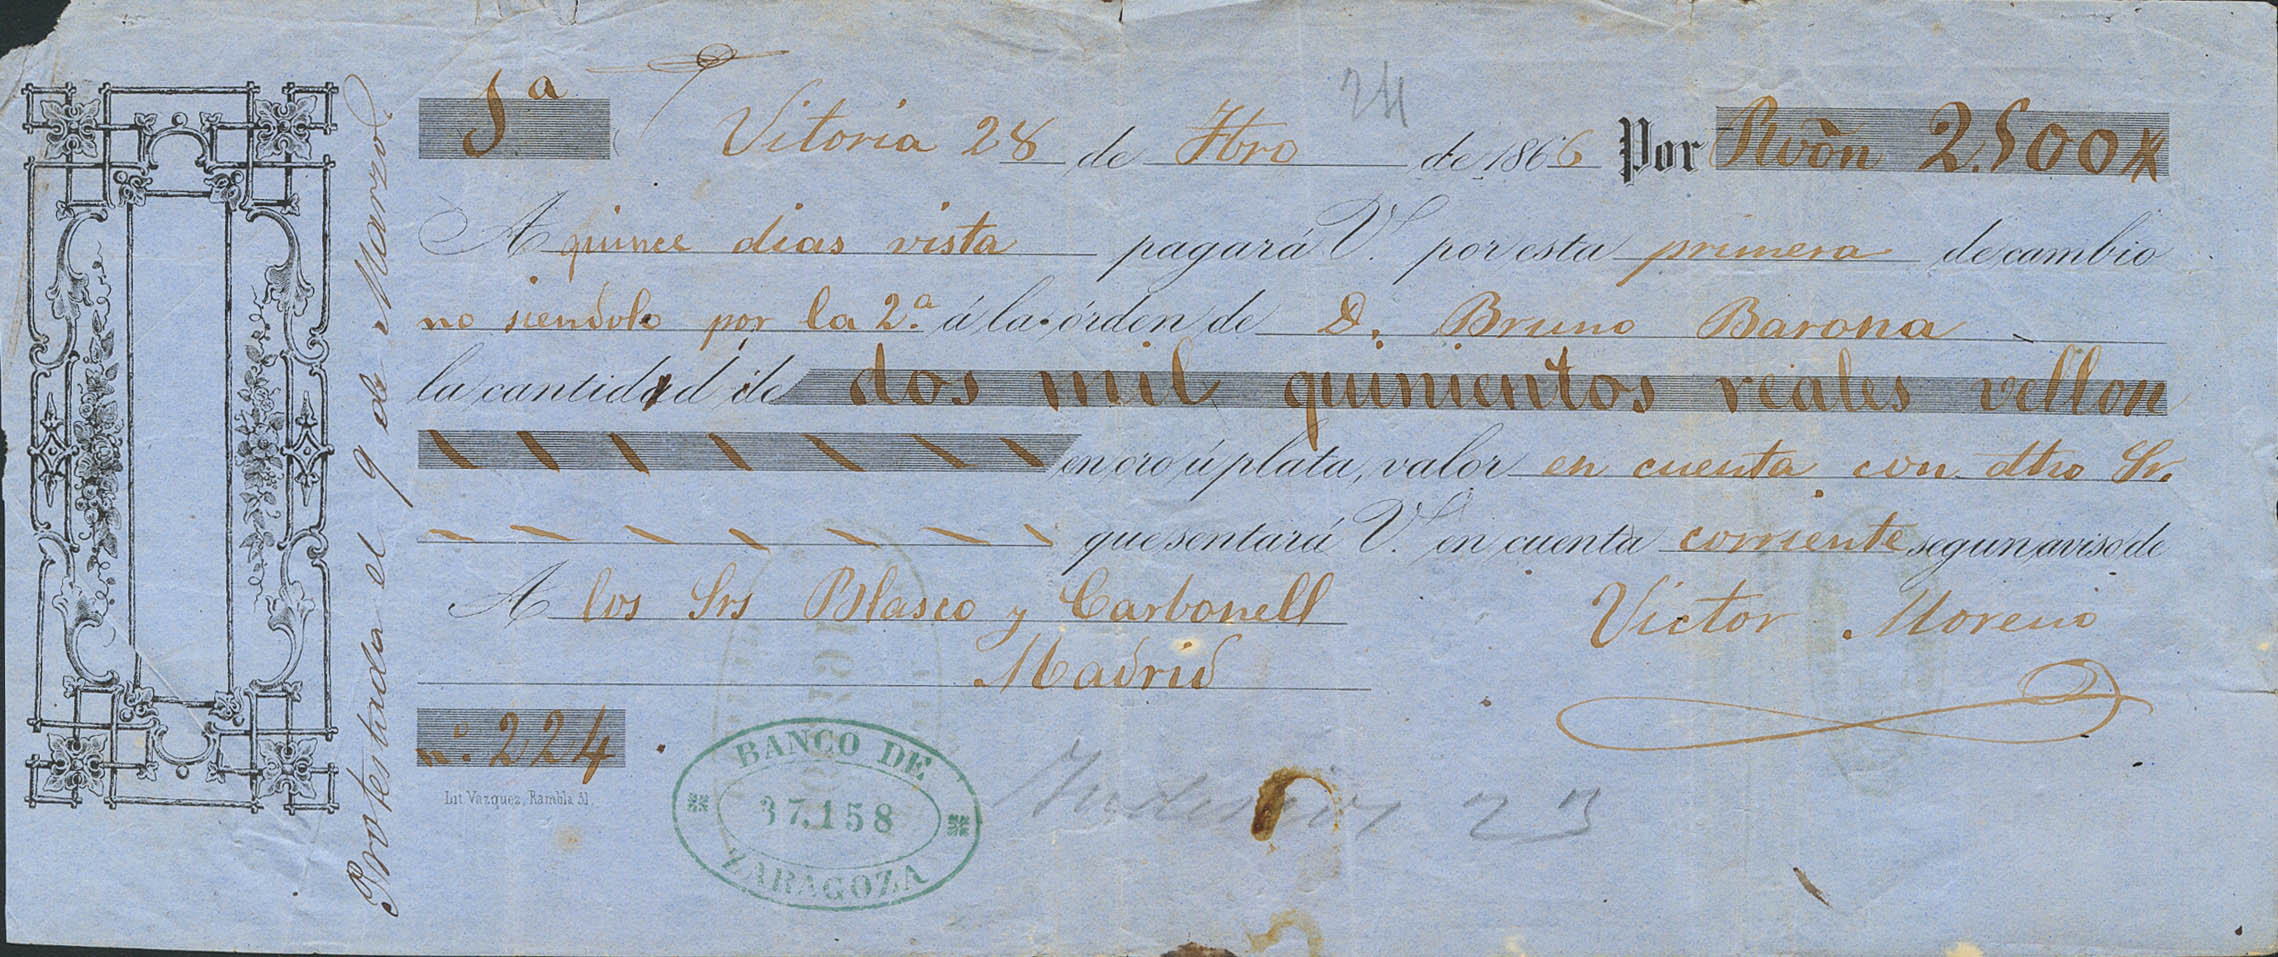 1ª
24
Vitoria 28 de Fbro de 1866 Por Rvon 2.500
A quince dias vista pagará V. por esta primera de cambio
no siendolo por la 2.ª á la órden de D. Bruno Barona
la cantidad de dos mil quinientos reales vellon
en oro ú plata, valor en cuenta con dho Sr.
que sentará V. en cuenta corriente segun aviso de
A los Srs Blasco y Carbonell
Victor Moreno
Madrid
nº. 224
Lit. Vazquez, Rambla 31.
BANCO DE
37.158
ZARAGOZA
23
Protestada el 9 de Marzo